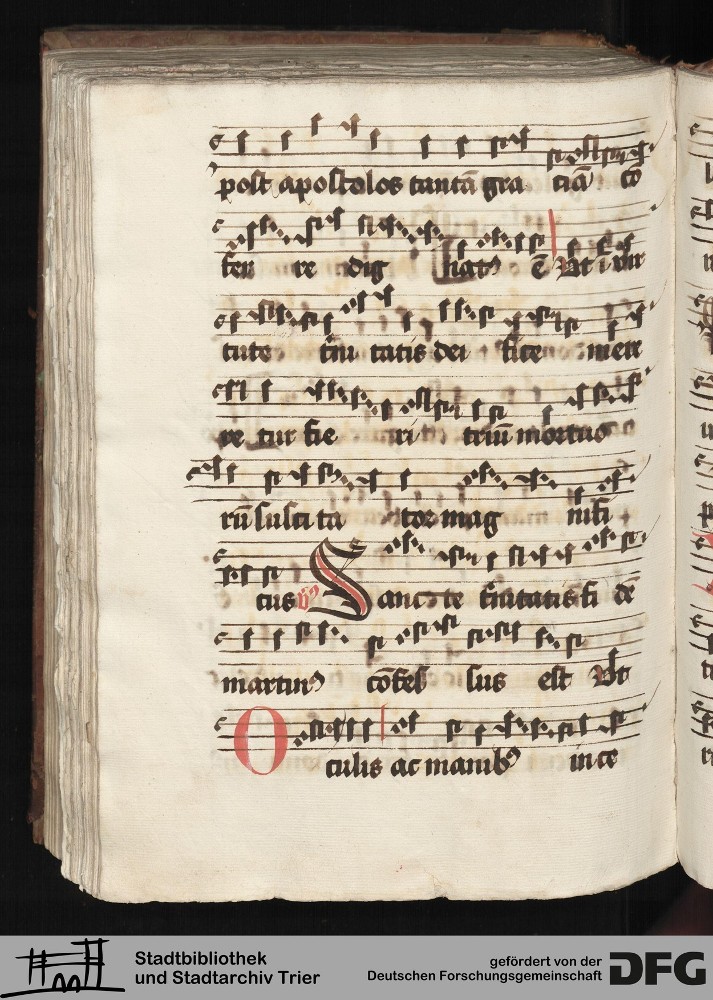 post apostolos tantā gra ciā cō
fer re dig nat⁹ ē Vt ī vir
tute t̄ni tatis dei fice mere
re tur fie ri triū mortuo
rū susci ta tor mag nifi
cus v̄⁹ Sancte t̄nitatis fi dē
martin⁹ cōfes sus est Vt
Oculis ac manib⁹ in ce
Stadtbibliothek
und Stadtarchiv Trier
gefördert von der
Deutschen Forschungsgemeinschaft
DFG